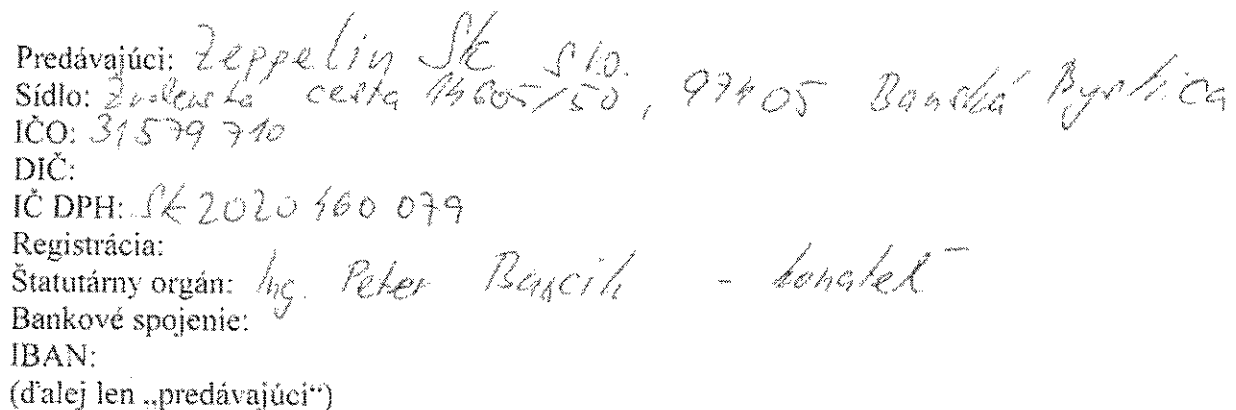 Predávajúci: Zeppelin SK s.r.o.
Sídlo: Zvolenská cesta 14605/50, 97405 Banská Bystrica
IČO: 31579710
DIČ:
IČ DPH: SK2020460079
Registrácia:
Štatutárny orgán: Ing. Peter - konateľ
Bankové spojenie:
IBAN:
(ďalej len „predávajúci“)